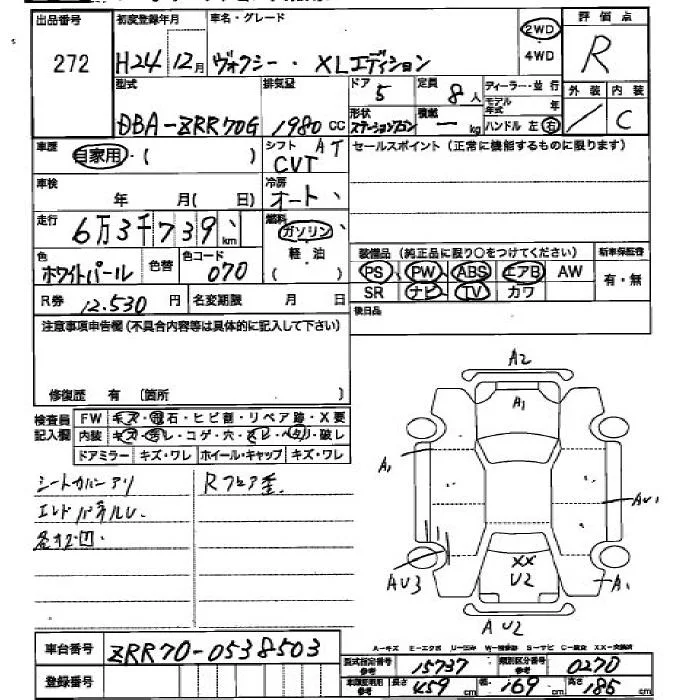 出品番号 初度登録年月 車名・グレード 評価点
272 H24年12月 ヴォクシー・XLエディション 2WD R
4WD
型式 排気量 ドア 5 定員 8人 ディーラー・並行 外装 内装
DBA-ZRR70G 1980cc 形状 ステーションワゴン 積載 ー kg モデル年式 年 / C
ハンドル 左 右
車歴 自家用・( ) シフト AT セールスポイント(正常に機能するものに限ります)
CVT
車検 年 月( 日) 冷房 オート
走行 6万3千739 km 燃料 ガソリン
軽油
( )
色 ホワイトパール 色替 色コード 070
装備品(純正品に限り○をつけてください) 新車保証書
PS PW ABS エアB AW 有・無
SR ナビ TV カワ
R券 12,530円 名変期限 月 日
後日品
注意事項申告欄(不具合内容等は具体的に記入して下さい)
修復歴 有 〔箇所 〕
検査員記入欄 FW キズ・飛石・ヒビ割・リペア跡・X要
内装 キズ・汚レ・コゲ・穴・スレ・ヘタリ・破レ
ドアミラー キズ・ワレ ホイール・キャップ キズ・ワレ
シートカバーアリ Rフロア歪.
エンドパネルU.
各オプ凹
A2
A1
A1
AU1
XX
U2
AU3
A1
AU2
A-キズ E-エクボ U-凹み W-補修跡 S-サビ C-腐食 XX-交換済
車台番号 ZRR70-0538503
登録番号
型式指定番号 参考 15737 類別区分番号 参考 0270
車検証明用 参考 長さ 459cm 幅 169cm 高さ 185cm